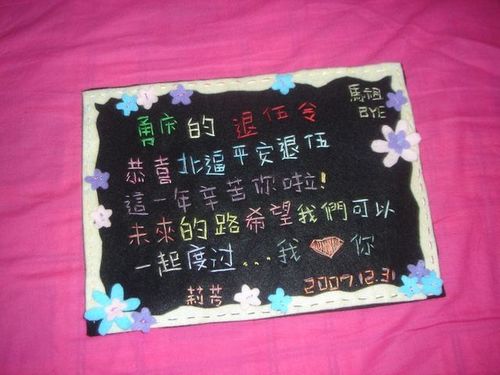 勇庆的 退伍令
馬祖
BYE
恭喜北逼平安退伍
這一年辛苦你啦!
未來的路希望我們可以
一起度过...我 你
莉芳
2007.12.31